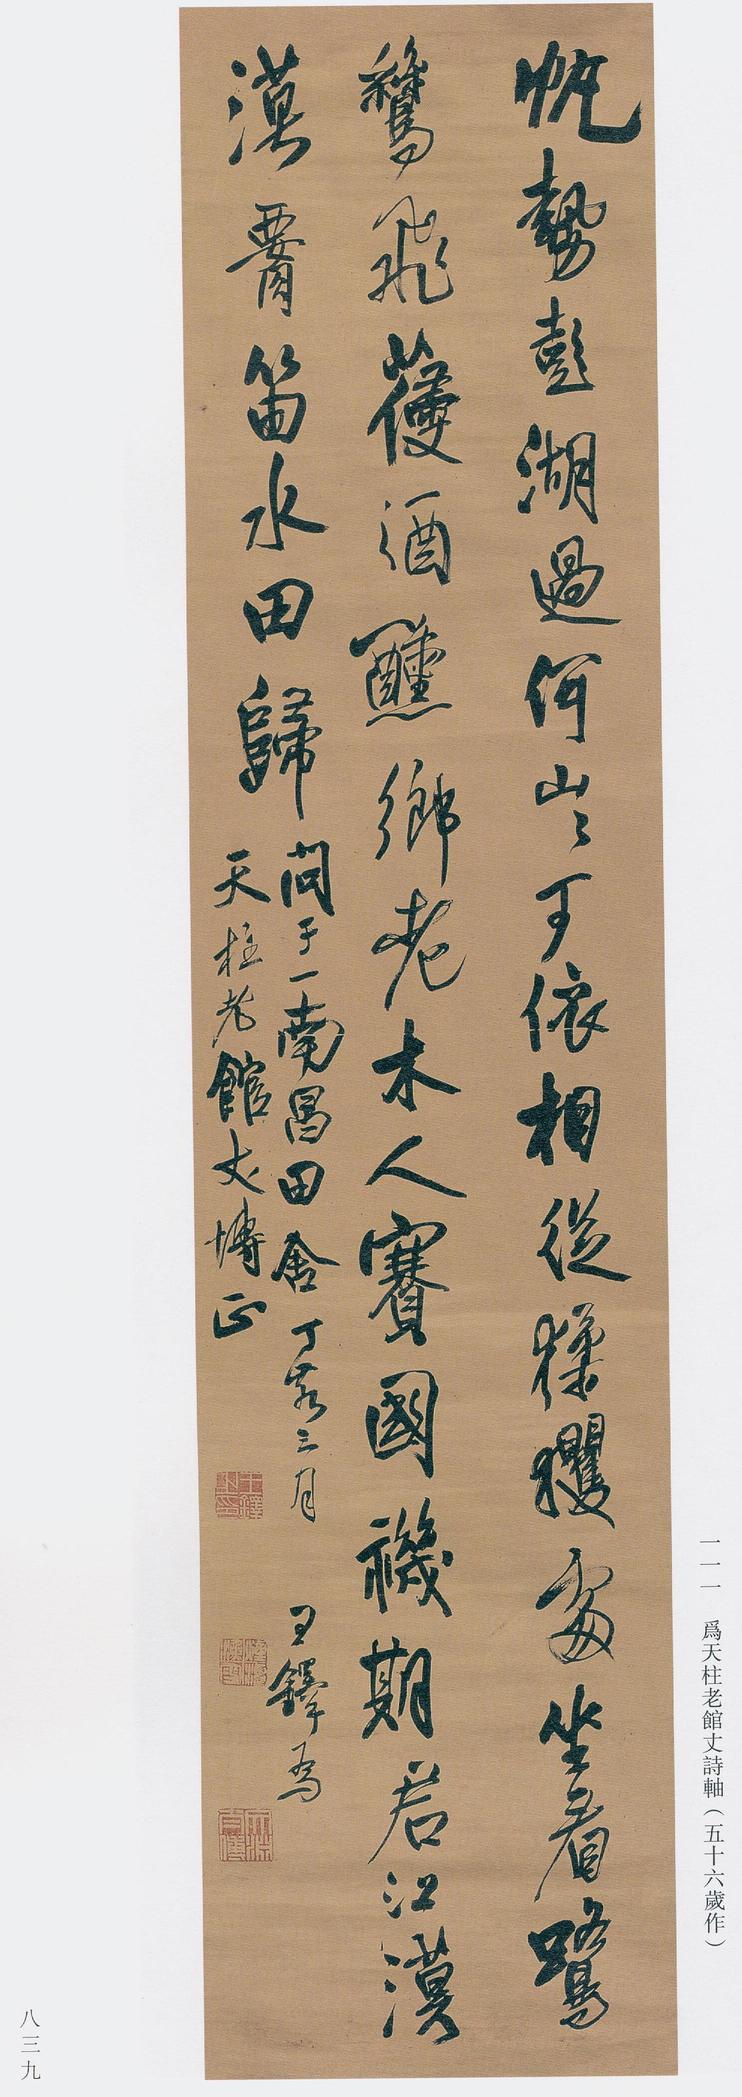 帆勢彭湖過何山山可依相從猱玃處坐看鷺
鶖飛蓩酒醺鄉老木人賽國禨期君江漠
漠 笛水田歸
問于一南昌田舍丁亥三月 王鐸爲
天柱老館丈博正
一一一 爲天柱老館丈詩軸(五十六歲作)
八三九